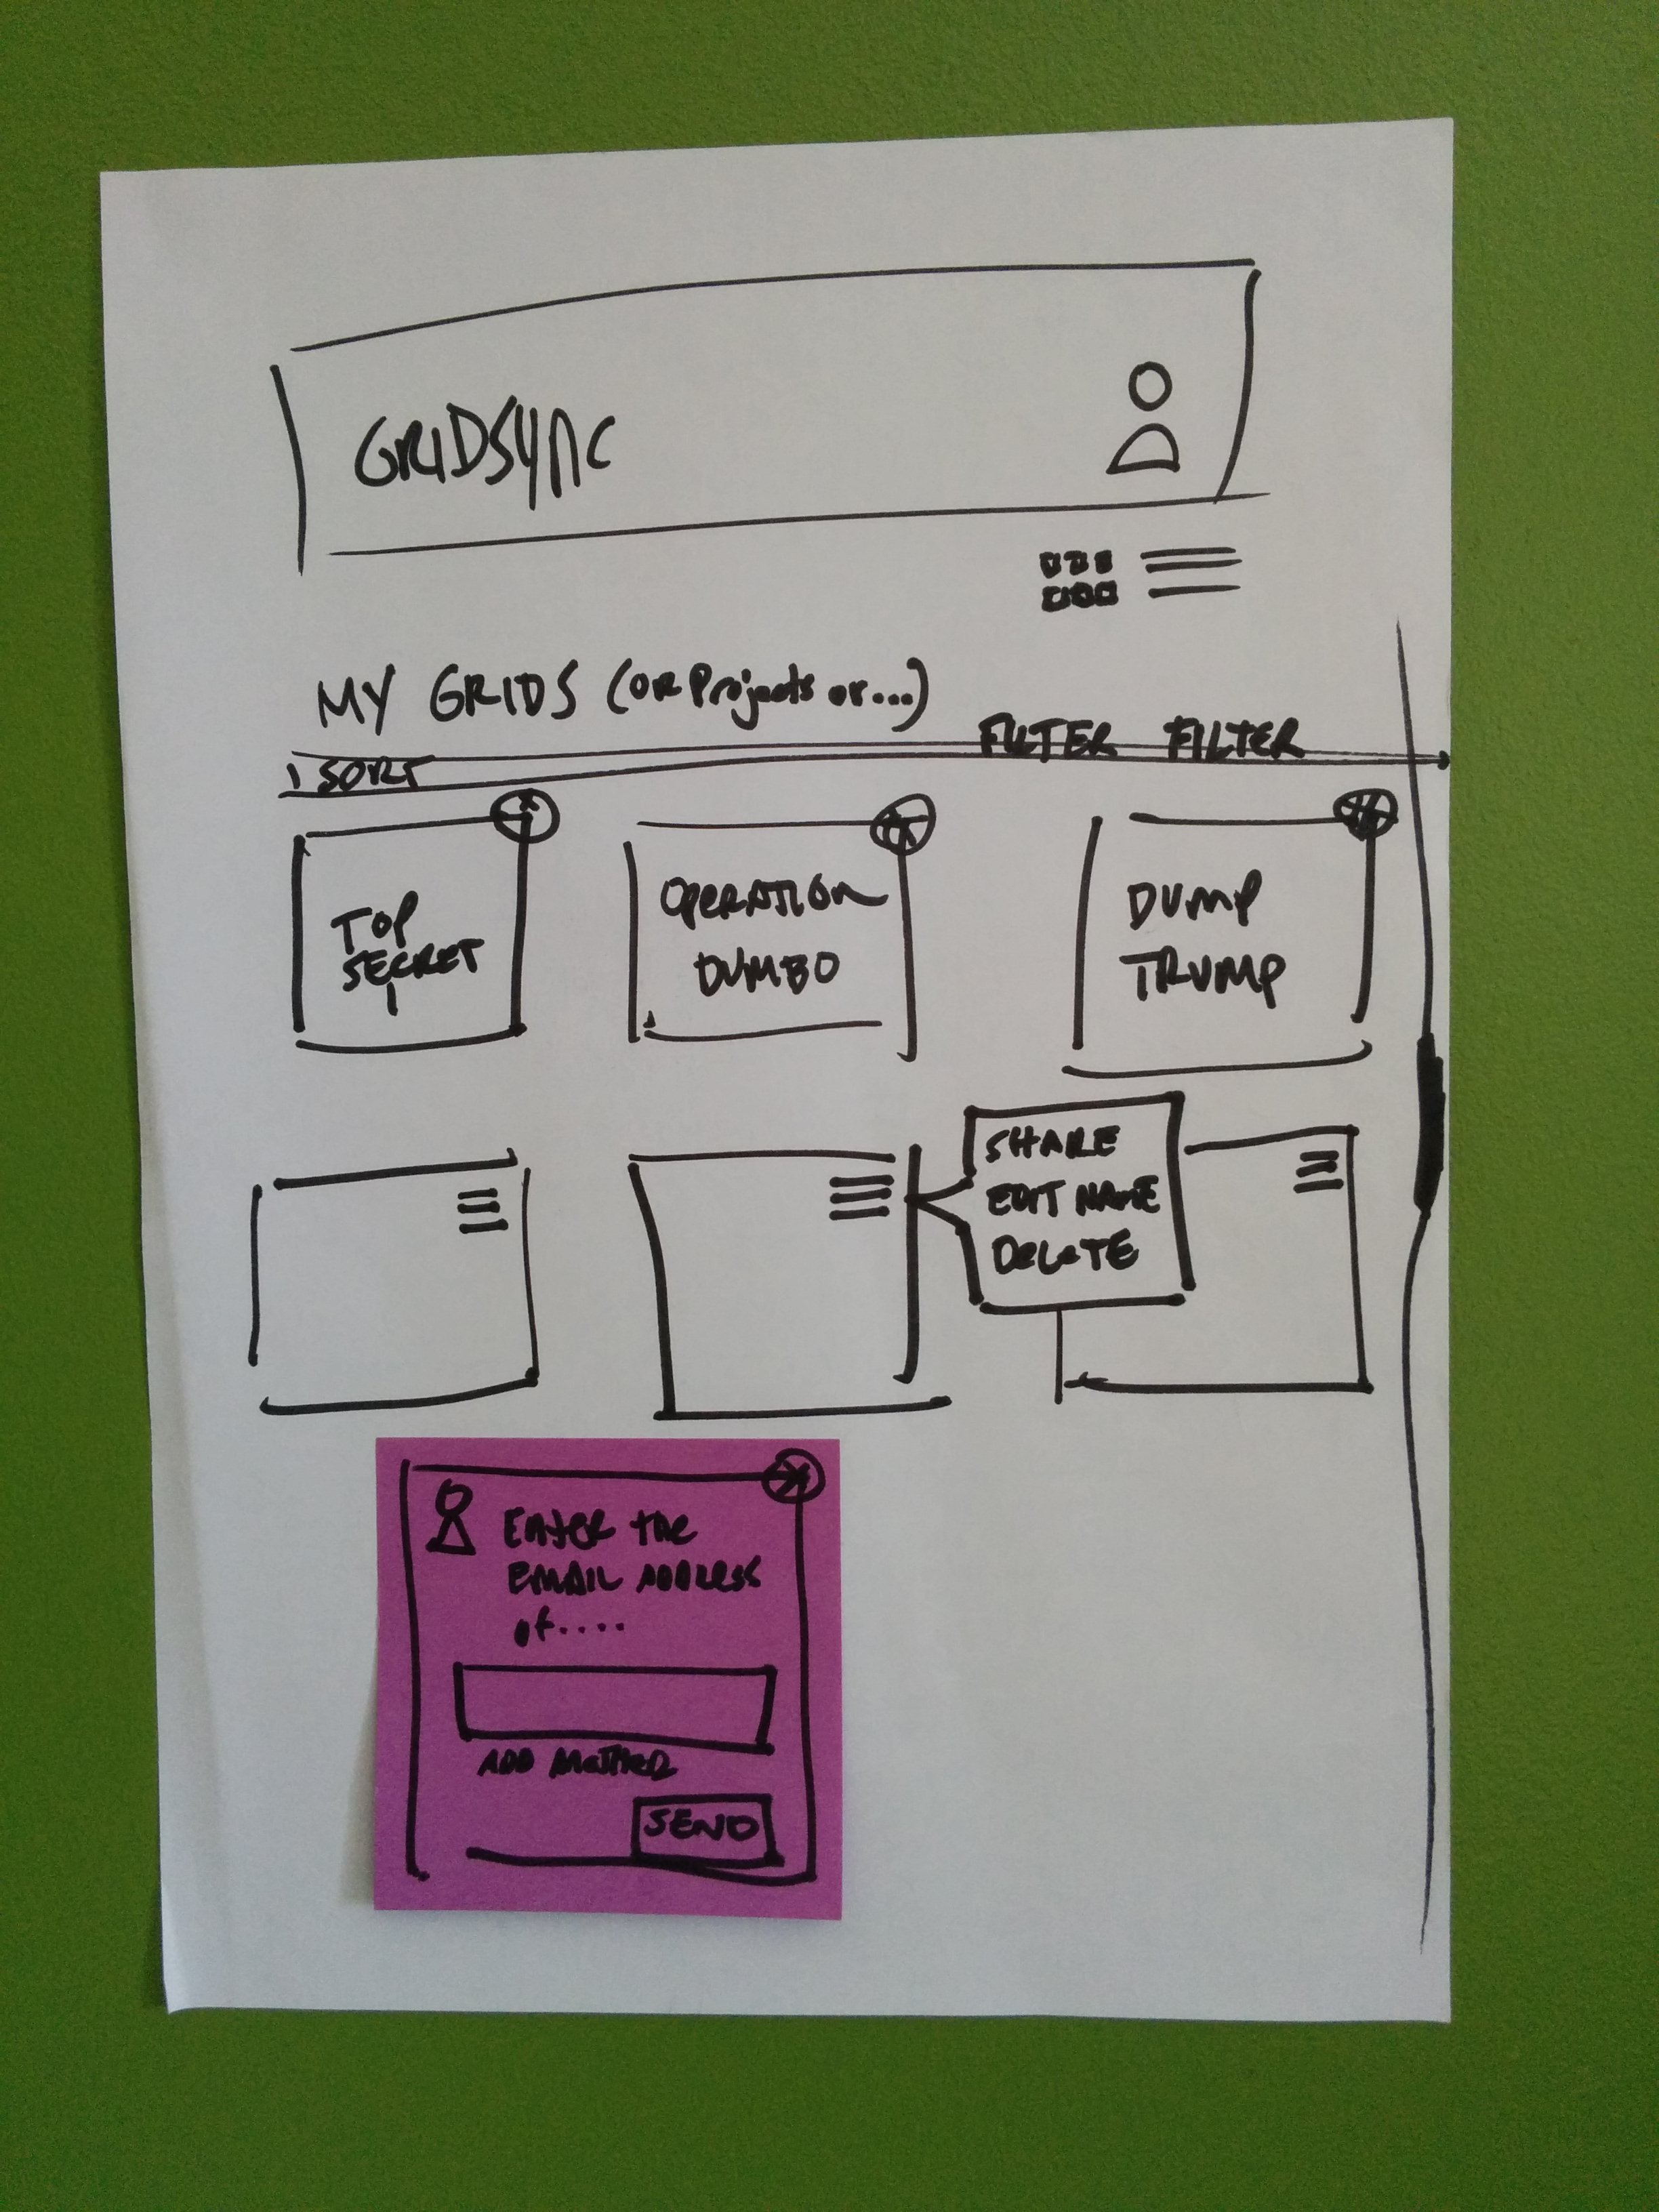 GRIDSYNC
MY GRIDS (OR Projects or...)
SORT FILTER FILTER
TOP
SECRET
OPERATION
DUMBO
DUMP
TRUMP
SHARE
EDIT NAME
DELETE
ENTER the
EMAIL ADDRESS
of....
ADD ANOTHER
SEND